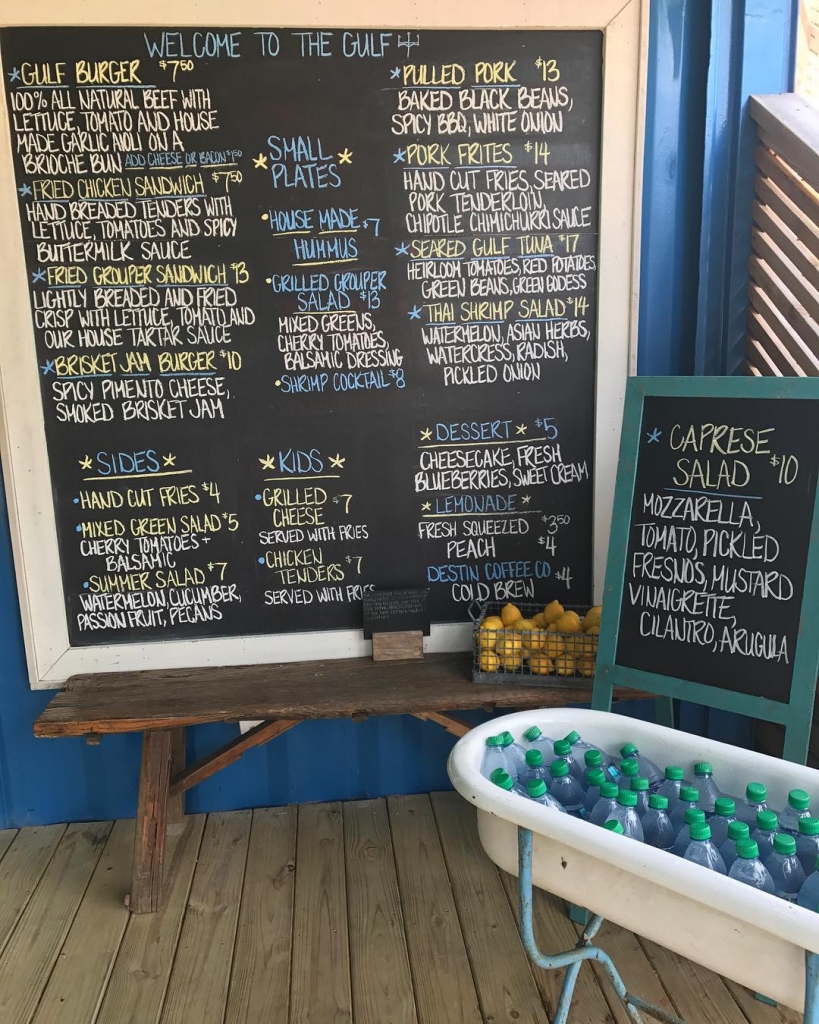 WELCOME TO THE GULF
*GULF BURGER $7.50
100% ALL NATURAL BEEF WITH
LETTUCE, TOMATO AND HOUSE
MADE GARLIC AIOLI ON A
BRIOCHE BUN ADD CHEESE OR BACON $1.50
*FRIED CHICKEN SANDWICH $7.50
HAND BREADED TENDERS WITH
LETTUCE, TOMATOES AND SPICY
BUTTERMILK SAUCE
*FRIED GROUPER SANDWICH $13
LIGHTLY BREADED AND FRIED
CRISP WITH LETTUCE, TOMATO AND
OUR HOUSE TARTAR SAUCE
*BRISKET JAM BURGER $10
SPICY PIMENTO CHEESE,
SMOKED BRISKET JAM
*SMALL*
PLATES
•HOUSE MADE $7
HUMMUS
•GRILLED GROUPER
SALAD $13
MIXED GREENS,
CHERRY TOMATOES,
BALSAMIC DRESSING
•SHRIMP COCKTAIL $8
*PULLED PORK $13
BAKED BLACK BEANS,
SPICY BBQ, WHITE ONION
*PORK FRITES $14
HAND CUT FRIES, SEARED
PORK TENDERLOIN,
CHIPOTLE CHIMICHURRI SAUCE
*SEARED GULF TUNA $17
HEIRLOOM TOMATOES, RED POTATOES,
GREEN BEANS, GREEN GODESS
*THAI SHRIMP SALAD $14
WATERMELON, ASIAN HERBS,
WATERCRESS, RADISH,
PICKLED ONION
*SIDES*
•HAND CUT FRIES $4
•MIXED GREEN SALAD $5
CHERRY TOMATOES +
BALSAMIC
•SUMMER SALAD $7
WATERMELON, CUCUMBER,
PASSION FRUIT, PECANS
*KIDS*
•GRILLED $7
CHEESE
SERVED WITH FRIES
•CHICKEN $7
TENDERS
SERVED WITH FRIES
*DESSERT* $5
CHEESECAKE, FRESH
BLUEBERRIES, SWEET CREAM
*LEMONADE*
FRESH SQUEEZED $3.50
PEACH $4
DESTIN COFFEE CO $4
COLD BREW
*CAPRESE
SALAD $10
MOZZARELLA,
TOMATO, PICKLED
FRESNOS, MUSTARD
VINAIGRETTE,
CILANTRO, ARUGULA